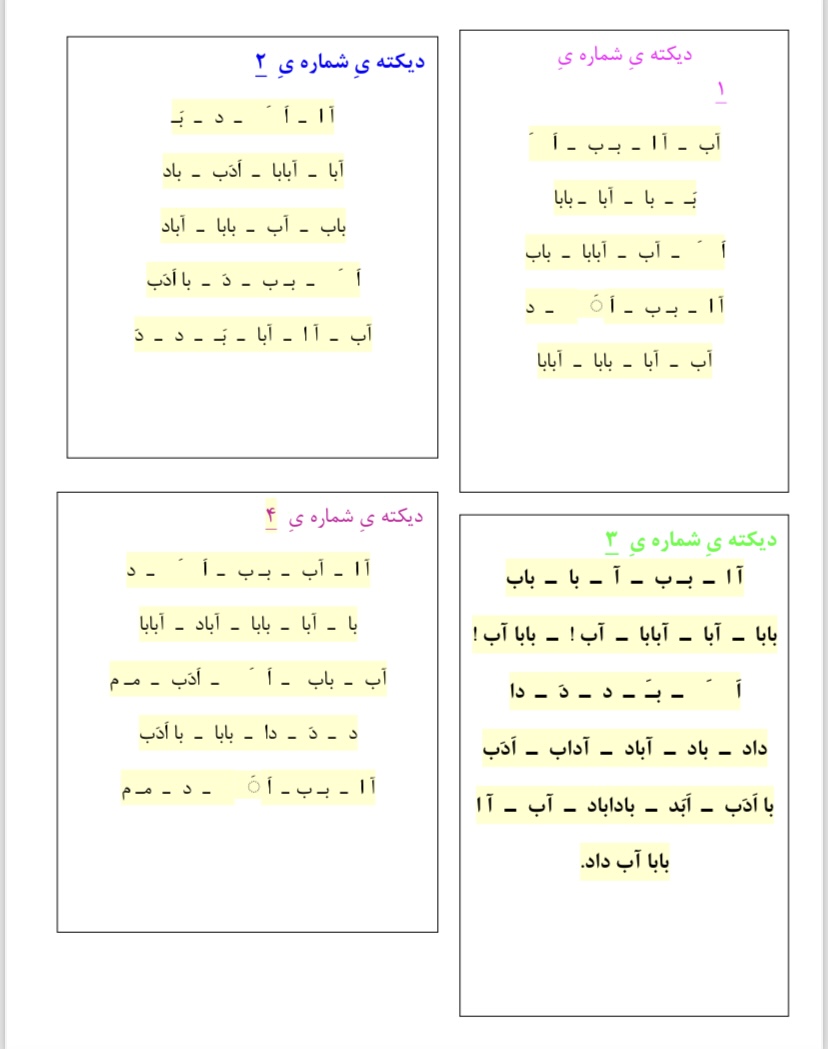 دیکته یِ شماره یِ
۱
آب ـ آ ا ـ بـ ب ـ اَ  َ
بَـ ـ با ـ آبا ـ بابا
اَ  َ ـ آب ـ آبابا ـ باب
آ ا ـ بـ ب ـ اَ  َ ـ د
آب ـ آبا ـ بابا ـ آبابا
دیکته یِ شماره یِ ۲
آ ا ـ اَ  َ ـ د ـ بَـ
آبا ـ آبابا ـ اَدَب ـ باد
باب ـ آب ـ بابا ـ آباد
اَ  َ ـ بـ ب ـ دَ ـ با اَدَب
آب ـ آ ا ـ آبا ـ بَـ ـ د ـ دَ
دیکته یِ شماره یِ ۳
آ ا ـ بـ ب ـ آ ـ با ـ باب
بابا ـ آبا ـ آبابا ـ آب ! ـ بابا آب !
اَ  َ ـ بَـ ـ د ـ دَ ـ دا
داد ـ باد ـ آباد ـ آداب ـ اَدَب
با اَدَب ـ اَبَد ـ باداباد ـ آب ـ آ ا
بابا آب داد.
دیکته یِ شماره یِ ۴
آ ا ـ آب ـ بـ ب ـ اَ  َ ـ د
با ـ آبا ـ بابا ـ آباد ـ آبابا
آب ـ باب ـ اَ  َ ـ اَدَب ـ مـ م
د ـ دَ ـ دا ـ بابا ـ با اَدَب
آ ا ـ بـ ب ـ اَ  َ ـ د ـ مـ م